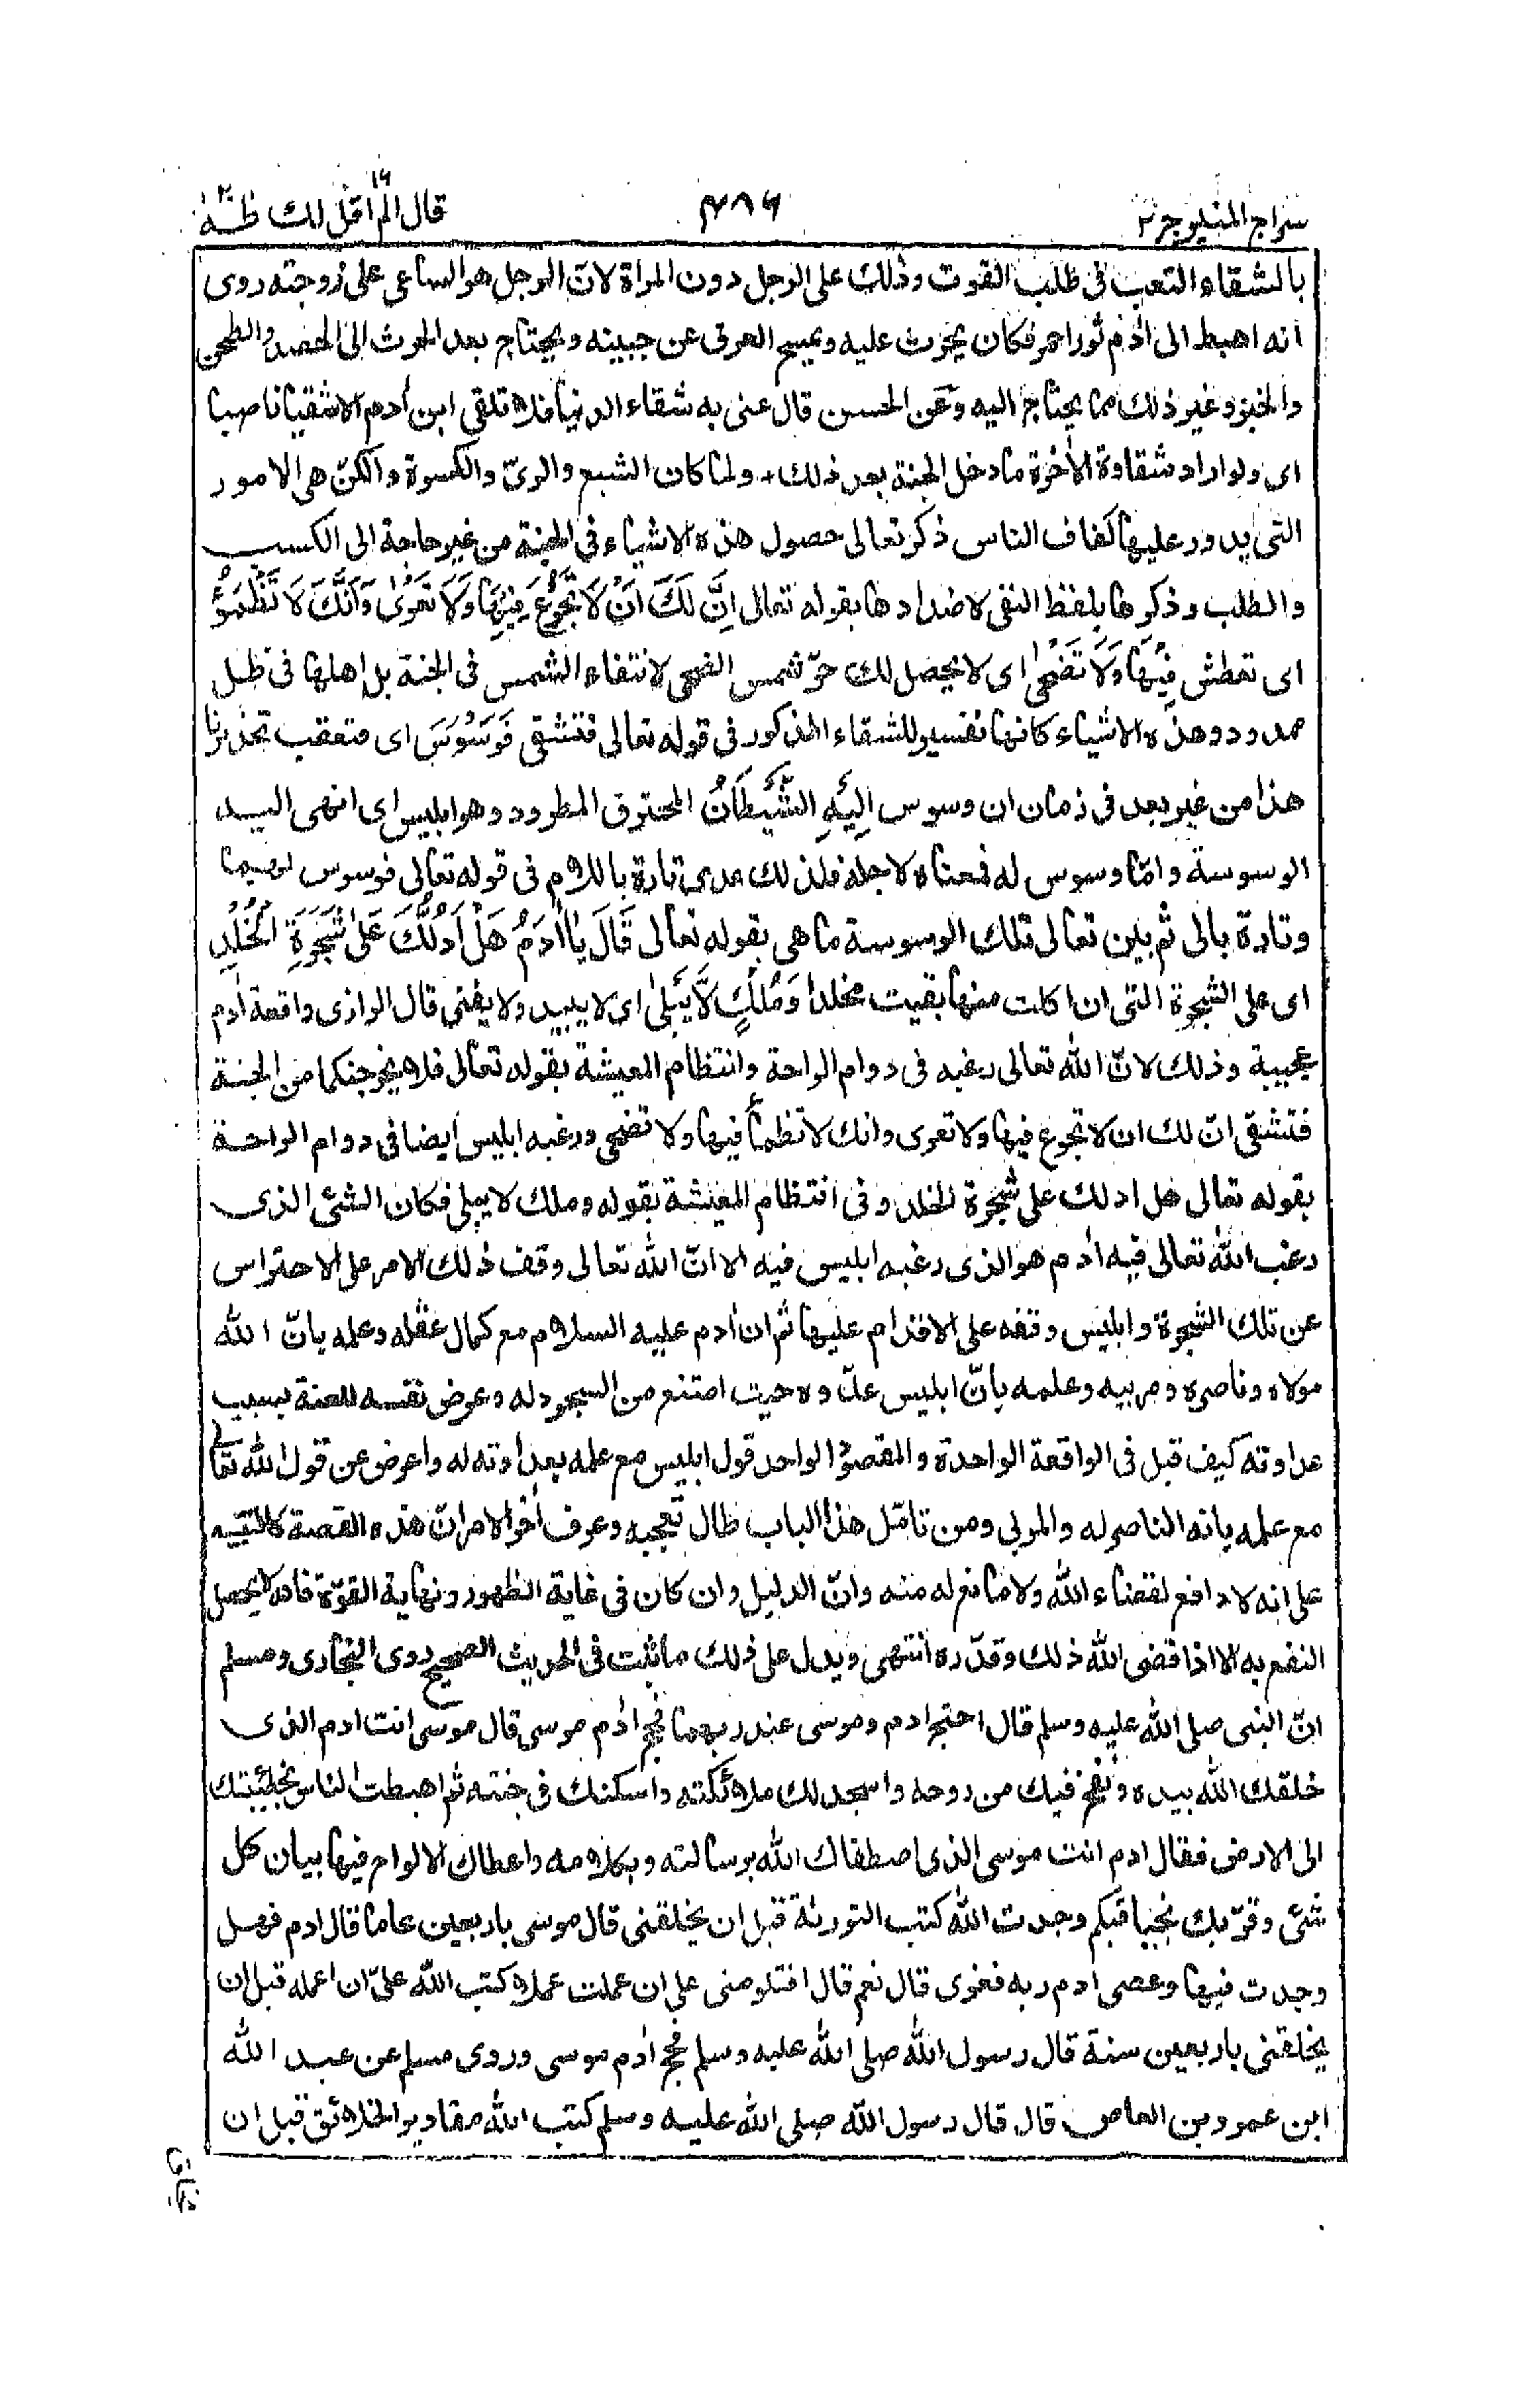 سراج المنير جز٢ ٤٨٦ قال الم اقل لك ١٦ طٰهٰ
بالشقاء التعب فى طلب القوت وذلك على الرجل دون المراة لانّ الرجل هو الساعى على زوجته روى
انه اهبط الى اٰدم ثور احمر فكان يحرث عليه ويمسح العرق عن جبينه ويحتاج بعد الحرث الى الحصد والطحن
والخبز وغير ذلك مما يحتاج اليه وعن الحسن قال عنى به شقاء الدنيا فلا تلقى ابن اٰدم الا شقيا ناصبا
اى ولو اراد شقاوة الاٰخرة ما دخل الجنة بعد ذلك ولما كان الشبع والرىّ والكسوة والكنّ هى الامور
التى يدور عليها كفاف الناس ذكر تعالى حصول هذه الاشياء فى الجنة من غير حاجة الى الكسب
والطلب وذكرها بلفظ النفى لاضدادها بقوله تعالى اِنَّ لَكَ اَنْ لَا تَجُوْعَ فِيْهَا وَلَا تَعْرٰى وَاَنَّكَ لَا تَظْمَؤُ
اى تعطش فِيْهَا وَلَا تَضْحٰى اى لا يحصل لك حرّ شمس الضحى لانتفاء الشمس فى الجنة بل اهلها فى ظل
ممدود وهذه الاشياء كانها تفسير للشقاء المذكور فى قوله تعالى فتشقى فَوَسْوَسَ اى فتعقب تحذيرنا
هذا من غير بعد فى زمان ان وسوس اِلَيْهِ الشَّيْطَانُ المحترق المطرود وهو ابليس اى انهى اليه
الوسوسة وامّا وسوس له فمعناه لاجله فلذلك عدى تارة باللام فى قوله تعالى فوسوس لهما
وتارة بالى ثم بين تعالى تلك الوسوسة ما هى بقوله تعالى قَالَ يَااٰدَمُ هَلْ اَدُلُّكَ عَلٰى شَجَرَةِ الْخُلْدِ
اى على الشجرة التى ان اكلت منها بقيت مخلدا وَمُلْكٍ لَّا يَبْلٰى اى لا يبيد ولا يفنى قال الرازى واقعة اٰدم
عجيبة وذلك لانّ الله تعالى رغبه فى دوام الراحة وانتظام المعيشة بقوله تعالى فلا يخرجنكما من الجنة
فتشقى انّ لك ان لا تجوع فيها ولا تعرى وانك لا تظمأ فيها ولا تضحى ورغبه ابليس ايضا فى دوام الراحة
بقوله تعالى هل ادلك على شجرة الخلد وفى انتظام المعيشة بقوله وملك لا يبلى فكان الشئ الذى
رغب الله تعالى فيه اٰدم هو الذى رغبه ابليس فيه الا انّ الله تعالى وقف ذلك الامر على الاحتراس
عن تلك الشجرة وابليس وقفه على الاقدام عليها ثم ان اٰدم عليه السلام مع كمال عقله وعلمه بانّ الله
مولاه وناصره ومربيه وعلمه بانّ ابليس عدوه حيث امتنع من السجود له وعرض نفسه للعنة بسبب
عداوته كيف قبل فى الواقعة الواحدة والمقصود الواحد قول ابليس مع علمه بعداوته له واعرض عن قول الله تعالى
مع علمه بانه الناصر له والمربى ومن تامّل هذا الباب طال تعجبه وعرف اٰخر الامر انّ هذه القصة كالتنبيه
على انه لا دافع لقضاء الله ولا مانع له منه وانّ الدليل وان كان فى غاية الظهور ونهاية القوّة فانه لا يحصل
النفع به الا اذا قضى الله ذلك وقدّره انتهى ويدل على ذلك ما ثبت فى الحديث الصحيح روى البخارى ومسلم
انّ النبى صلى الله عليه وسلم قال احتج ادم وموسى عند ربهما فحج اٰدم موسى قال موسى انت ادم الذى
خلقك الله بيده ونفخ فيك من روحه واسجد لك ملائكته واسكنك فى جنته ثم اهبطت الناس بخطيئتك
الى الارض فقال ادم انت موسى الذى اصطفاك الله برسالته وبكلامه واعطاك الالواح فيها بيان كل
شئ وقرّبك نجيا فبكم وجدت الله كتب التورٰىة قبل ان يخلقنى قال موسى باربعين عاما قال ادم فهل
وجدت فيها وعصى ادم ربه فغوى قال نعم قال افتلومنى على ان عملت عملا كتب الله علىّ ان اعمله قبل ان
يخلقنى باربعين سنة قال رسول الله صلى الله عليه وسلم فحج اٰدم موسى وروى مسلم عن عبد الله
ابن عمرو بن العاص قال قال رسول الله صلى الله عليه وسلم كتب الله مقادير الخلائق قبل ان